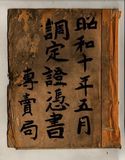 昭和十年五月
調定證憑書
專賣局